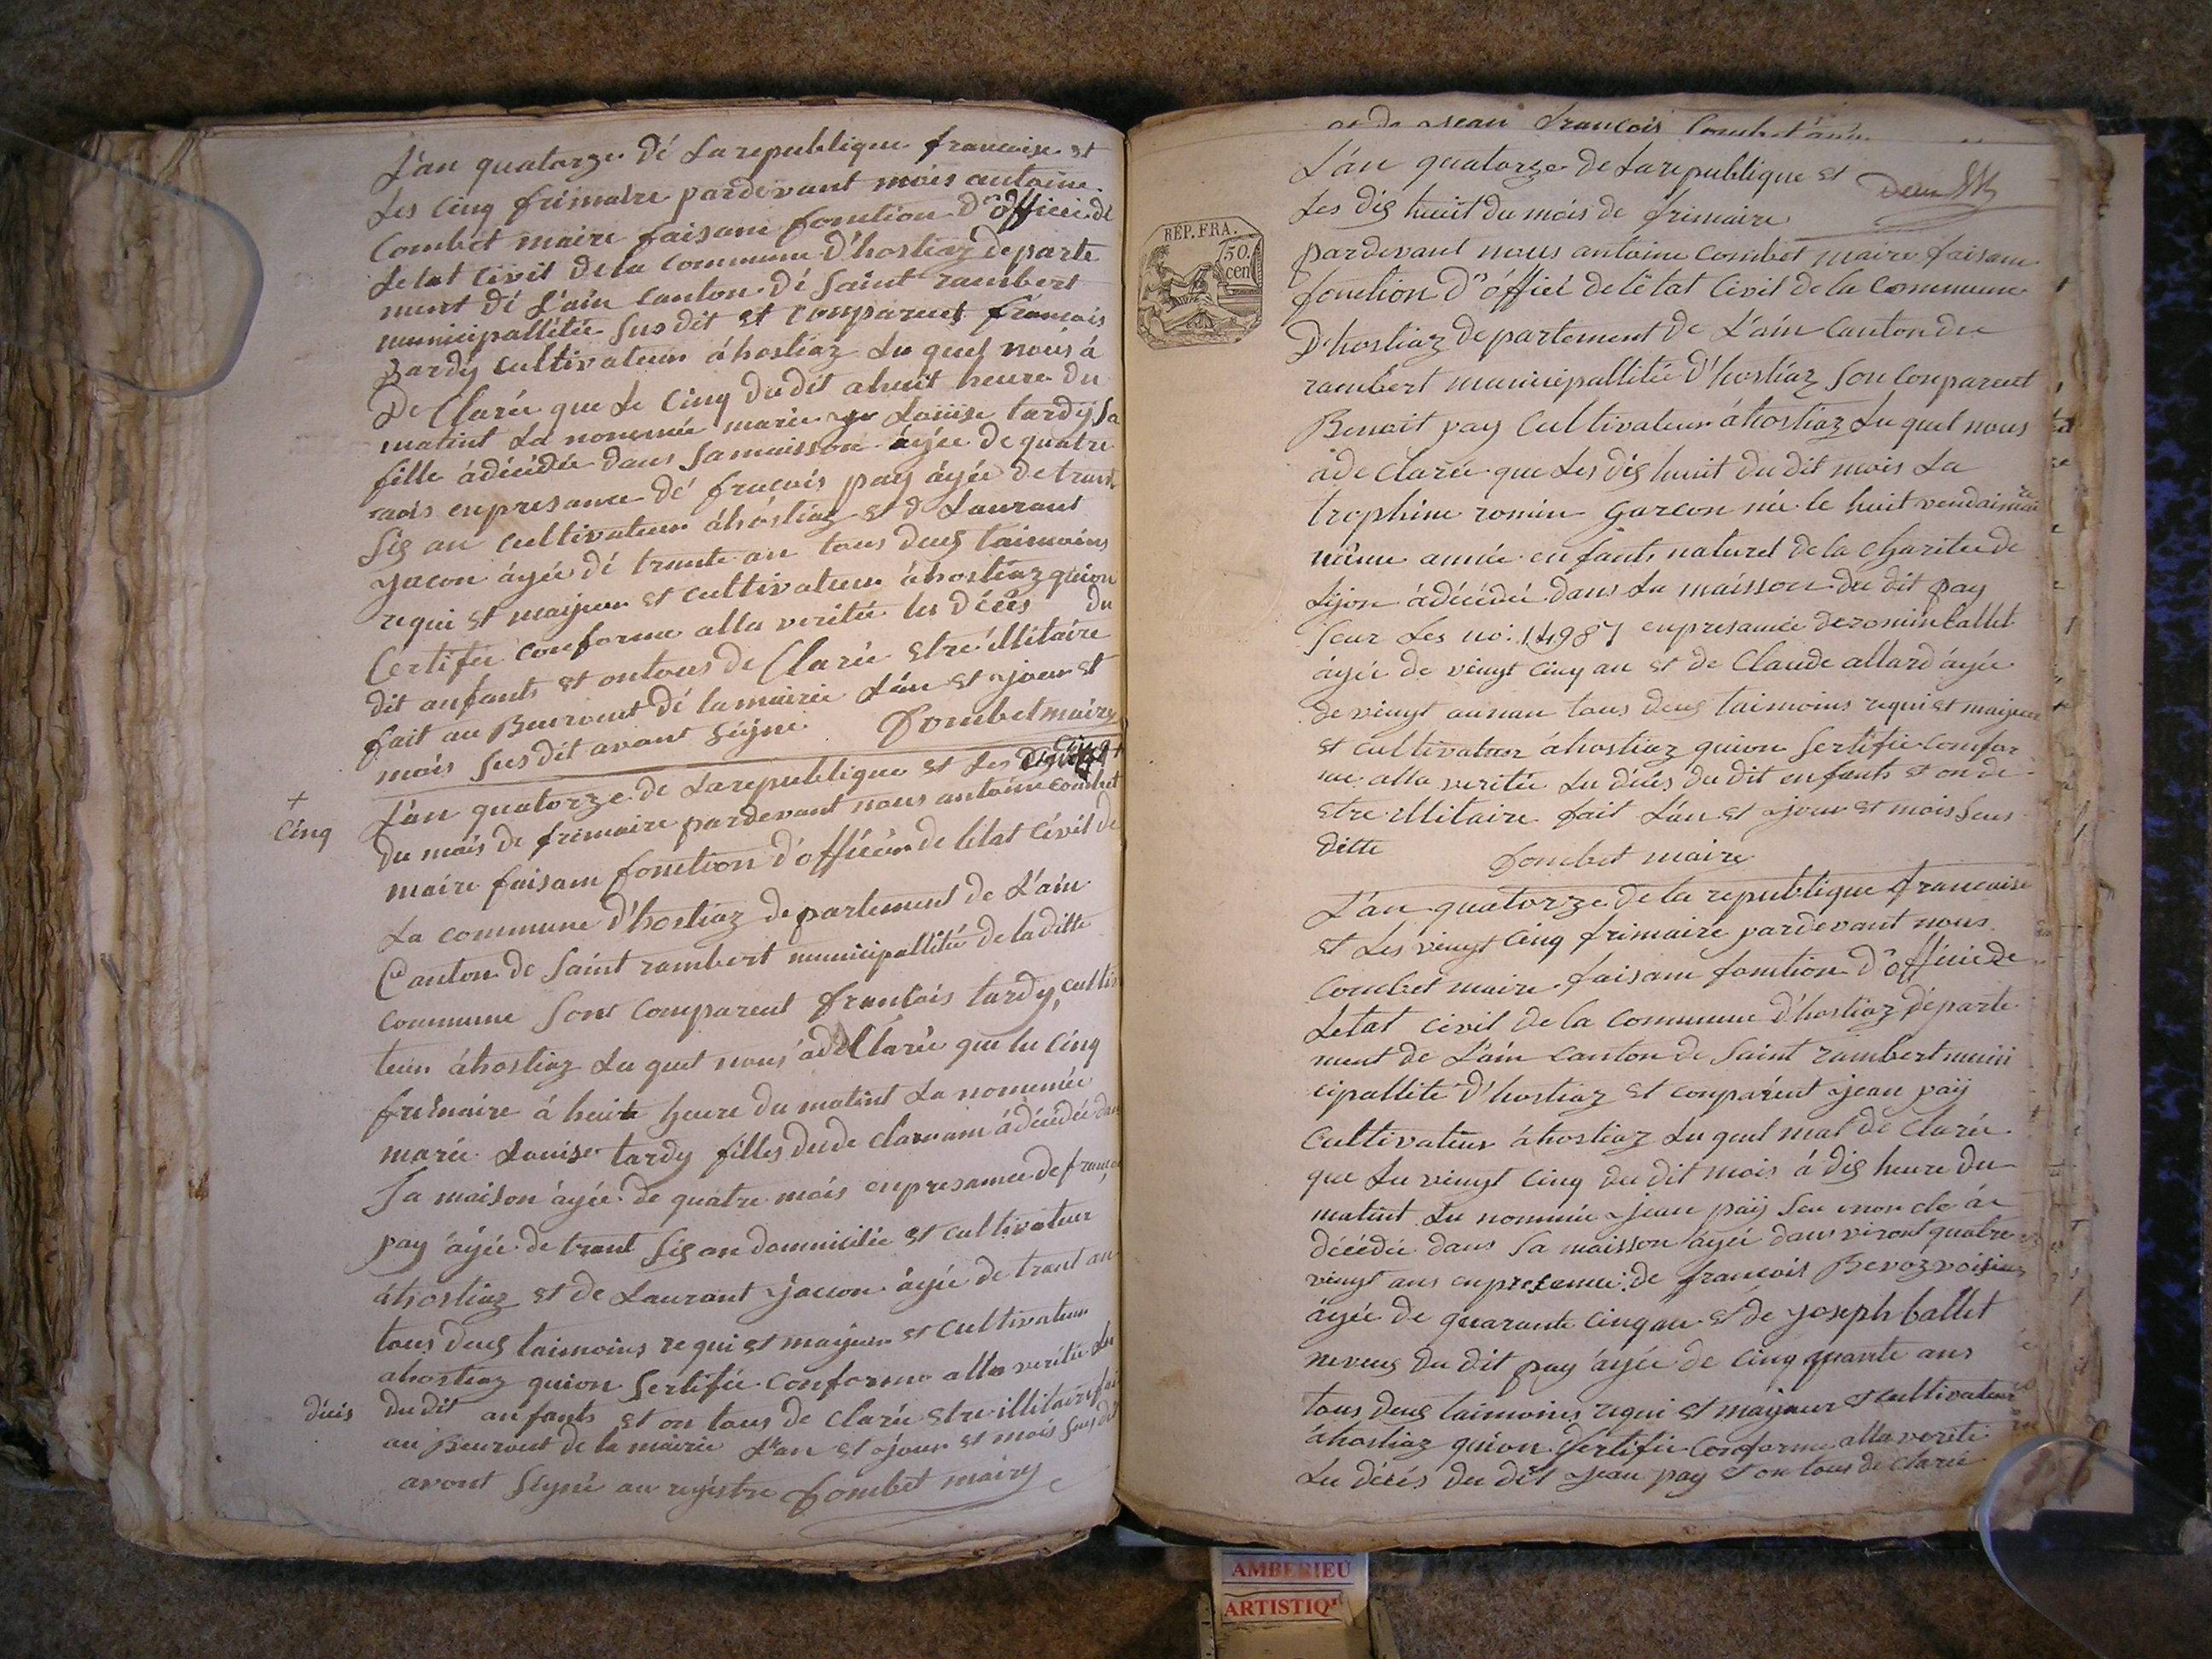 L'an quatorze dé Larepublique francoise et
Les cinq frimaire pardevant nous antoine
Combet maire faisam fonction D'officié de
Letat Civil De la Commune D'hostiaz departe
ment dé L'ain Canton dé Saint rambert
municipallitée Sus dit et Comparuet francois
tardy Cultivateur áhostiaz Lu quel nous á
De Clarée que Le Cinq du dit ahuit heure du
matint La nommée marie Louise tardy Sa
fille ádécidée dans Samaisson áyée de quatre
mois enpresance dé fracois pay áyée de trant
Sis an cultivateur áhostiaz et de Laurant
yacon áyée dé trante an tous deus taimoins
requi et majeur et cultivateur áhostiaz quion
Certifée conforme alla veritée lu Décès du
dit anfants et ontous de Clarée etre illitaire
fait au Beuraut dé la mairie L'an et jour et
mois Sus dit avant Signe Combet maire
L'an quatorze de Larepublique et Les
+
Cinq
du mois de frimaire pardevant nous antoine Combet
maire faisam fonction d'officier de letat Civil de
La commune d'hostiaz departement de L'ain
Canton de Saint rambert municipallitée de laditte
Commune Sont Comparent francois tardy cultiv
teur áhostiaz Lu quel nous adeClarée que lu Cinq
frimaire á huit heure du matint La nommée
marie Louise tardy filles dude claram ádécidée dan
Sa maison áyée de quatre mois enpresance de francoi
pay áyée de trant Sis an domicilée et cultivateur
áhostiaz et de Laurant yacon áyée de trant an
tous deus taimoins requi et majeur et Cultivateur
ahostiaz quion Sertifée Conforme alla veritée du
décis du dit anfants et on tous de clarée etre illitaire fai
au Beuraut de la mairie L'an et jour et mois Sus dit
avont Signé au registre Combet maire
et de jean francois Combet
L'an quatorze de Larepublique et
Les dis huit du mois de frimaire
pardevant nous antoine combet maire faisam
fonction D'officié de létat Civil de la Commune
D'hostiaz departement de L'ain Canton du
rambert municipallitée d'hostiaz Son Conparent
Benoit pay Cultivateur áhostiaz Lu quel nous
áde clarée que Les dis huit du dit mois La
trophine romin garcon née le huit vendaimaire
même année enfants naturel de la Charitée de
Lijon ádécidée dans La maisson du dit pay
Sour Les no: 14987 enpresance de romin ballet
áyée de vingt Cinq an et de Claude allard áyée
de vingt aunan tous deus taimoins requi et majeur
et cultivateur áhostiaz quion Sertifée Confor
me alla veritée Lu décés du dit enfants et on de
etre illitaire fait L'an et jour et mois Sus
ditte Combet maire
L'an quatorze de la republique francoise
et Les vingt Cinq frimaire pardevant nous
Combet maire faisam fonction D'officié de
Letat Civil de la Commune D'hostiaz departe
ment de L'ain Canton de Saint rambert muni
cipallité d'hostiaz et conparent jean pay
Cultivateur áhostiaz Lu quel mat de clarée
que Lu vingt Cinq du dit mois á dis heure du
matint Lu nommée jean pay Son oncle á
décédée dans Sa maisson áyée dans viront quatre
vingt ans enpresance de francois Bevoz voisins
áyée de quarante Cinq an et de joseph ballet
neveus du dit pay áyée de Cinq quante ans
tous deus taimoins requi et majeur et Cultivateur
áhostiaz quion Sertifée Conforme alla verité
Lu décés du dit jean pay et on tous de clarée
RÉP. FRA.
50.
cen
AMBERIEU
ARTISTIQ